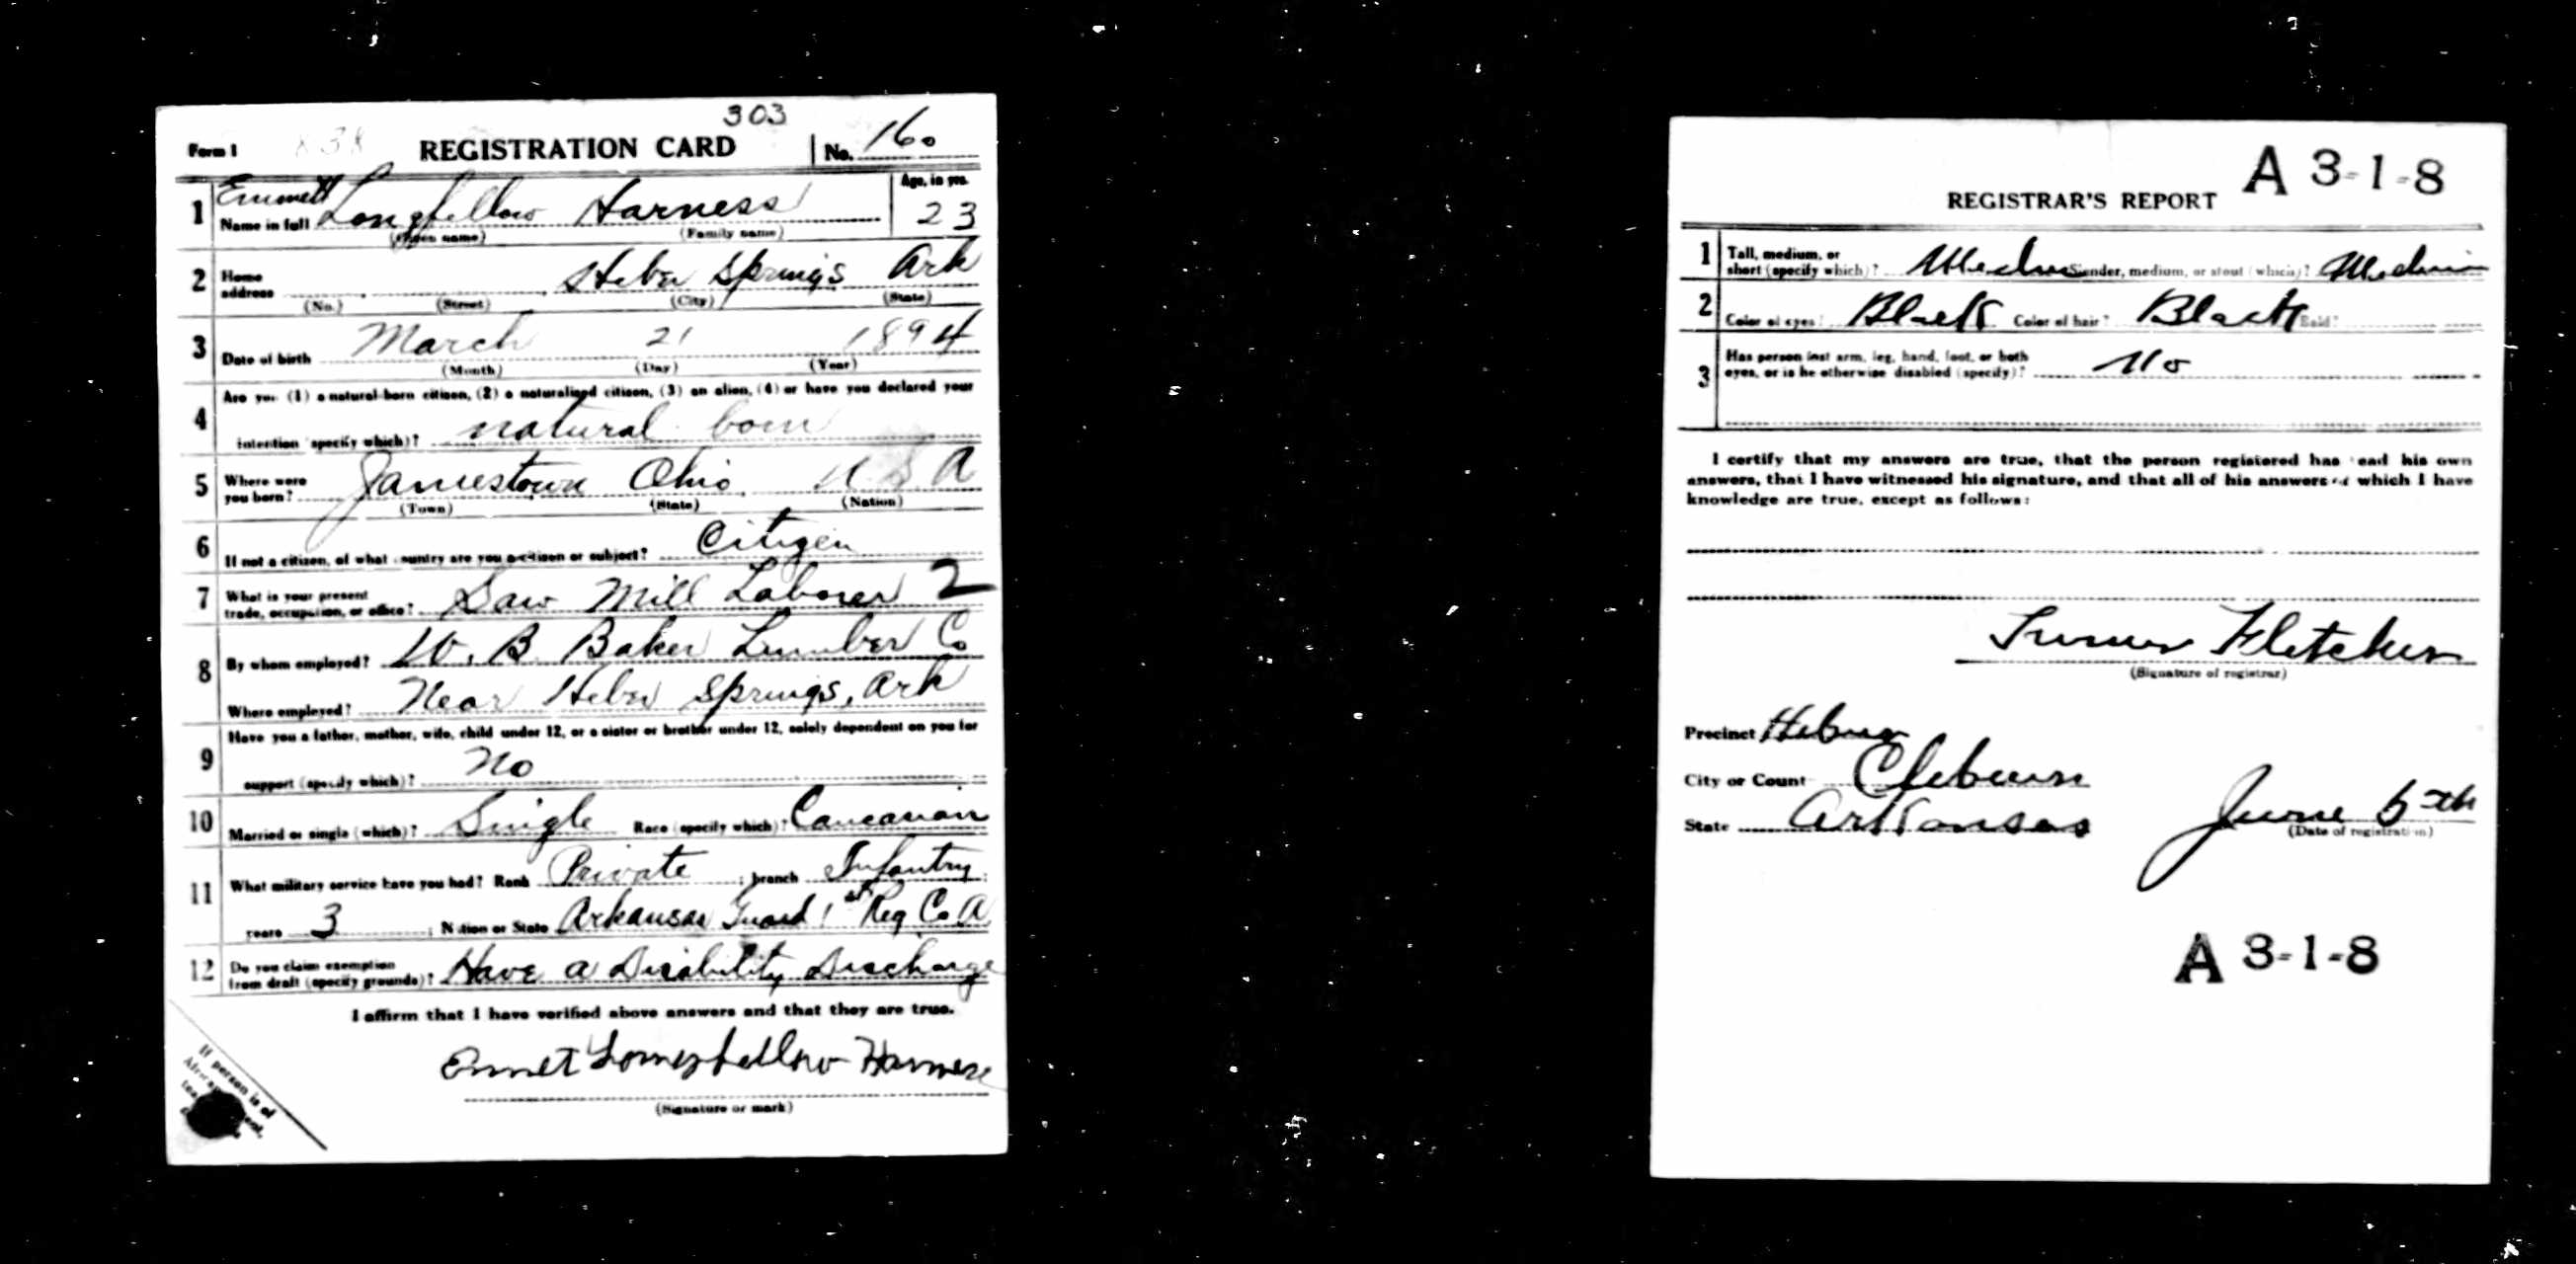 303
Form 1 838 REGISTRATION CARD No. 160
Emmett
1 Name in full Longfellow Harness Age, in yrs. 23
(Given name) (Family name)
2 Home address Heber Springs Ark
(No.) (Street) (City) (State)
3 Date of birth March 21 1894
(Month) (Day) (Year)
4 Are you (1) a natural-born citizen, (2) a naturalized citizen, (3) an alien, (4) or have you declared your
intention (specify which)? natural born
5 Where were you born? Jamestown Ohio U S A
(Town) (State) (Nation)
6 If not a citizen, of what country are you a citizen or subject? Citizen
7 What is your present trade, occupation, or office? Saw Mill Laborer 2
8 By whom employed? W. B. Baker Lumber Co
Where employed? Near Heber Springs, Ark
9 Have you a father, mother, wife, child under 12, or a sister or brother under 12, solely dependent on you for
support (specify which)? No
10 Married or single (which)? Single Race (specify which)? Caucasian
11 What military service have you had? Rank Private ; branch Infantry ;
years 3 ; Nation or State Arkansas Guard 1st Reg Co A
12 Do you claim exemption from draft (specify grounds)? Have a Disability Discharge
I affirm that I have verified above answers and that they are true.
Emmet Longfellow Harness
(Signature or mark)
If person is of
A 3-1-8
REGISTRAR'S REPORT
1 Tall, medium, or short (specify which)? Medium Slender, medium, or stout (which)? Medium
2 Color of eyes? Black Color of hair? Black Bald?
3 Has person lost arm, leg, hand, foot, or both
eyes, or is he otherwise disabled (specify)? No
I certify that my answers are true, that the person registered has read his own
answers, that I have witnessed his signature, and that all of his answers of which I have
knowledge are true, except as follows:
Turner Fletcher
(Signature of registrar)
Precinct Heber
City or County Cleburn
State Arkansas June 5th
(Date of registration)
A 3-1-8